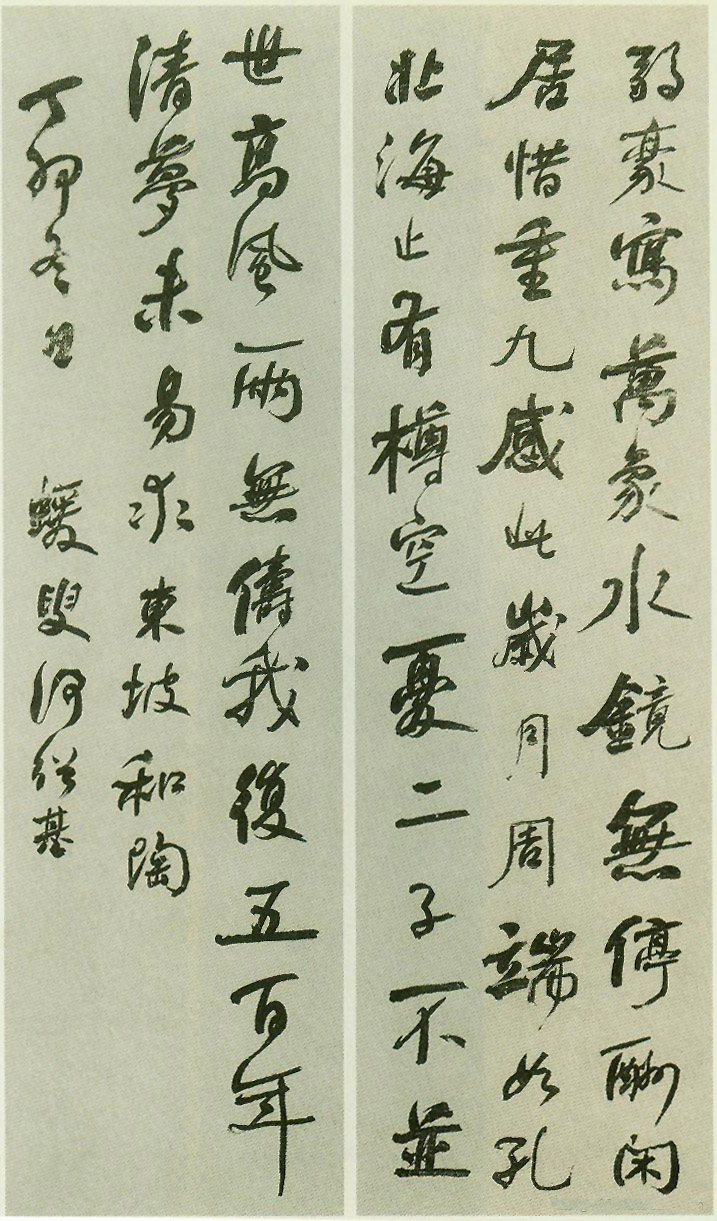 弱豪寫萬象水鏡無停酬閑
居惜重九感此歲月周端如孔
北海止有樽空憂二子不並
世高風兩無儔我復五百年
清夢未易求東坡和陶
丁卯冬日 蝯叟何紹基